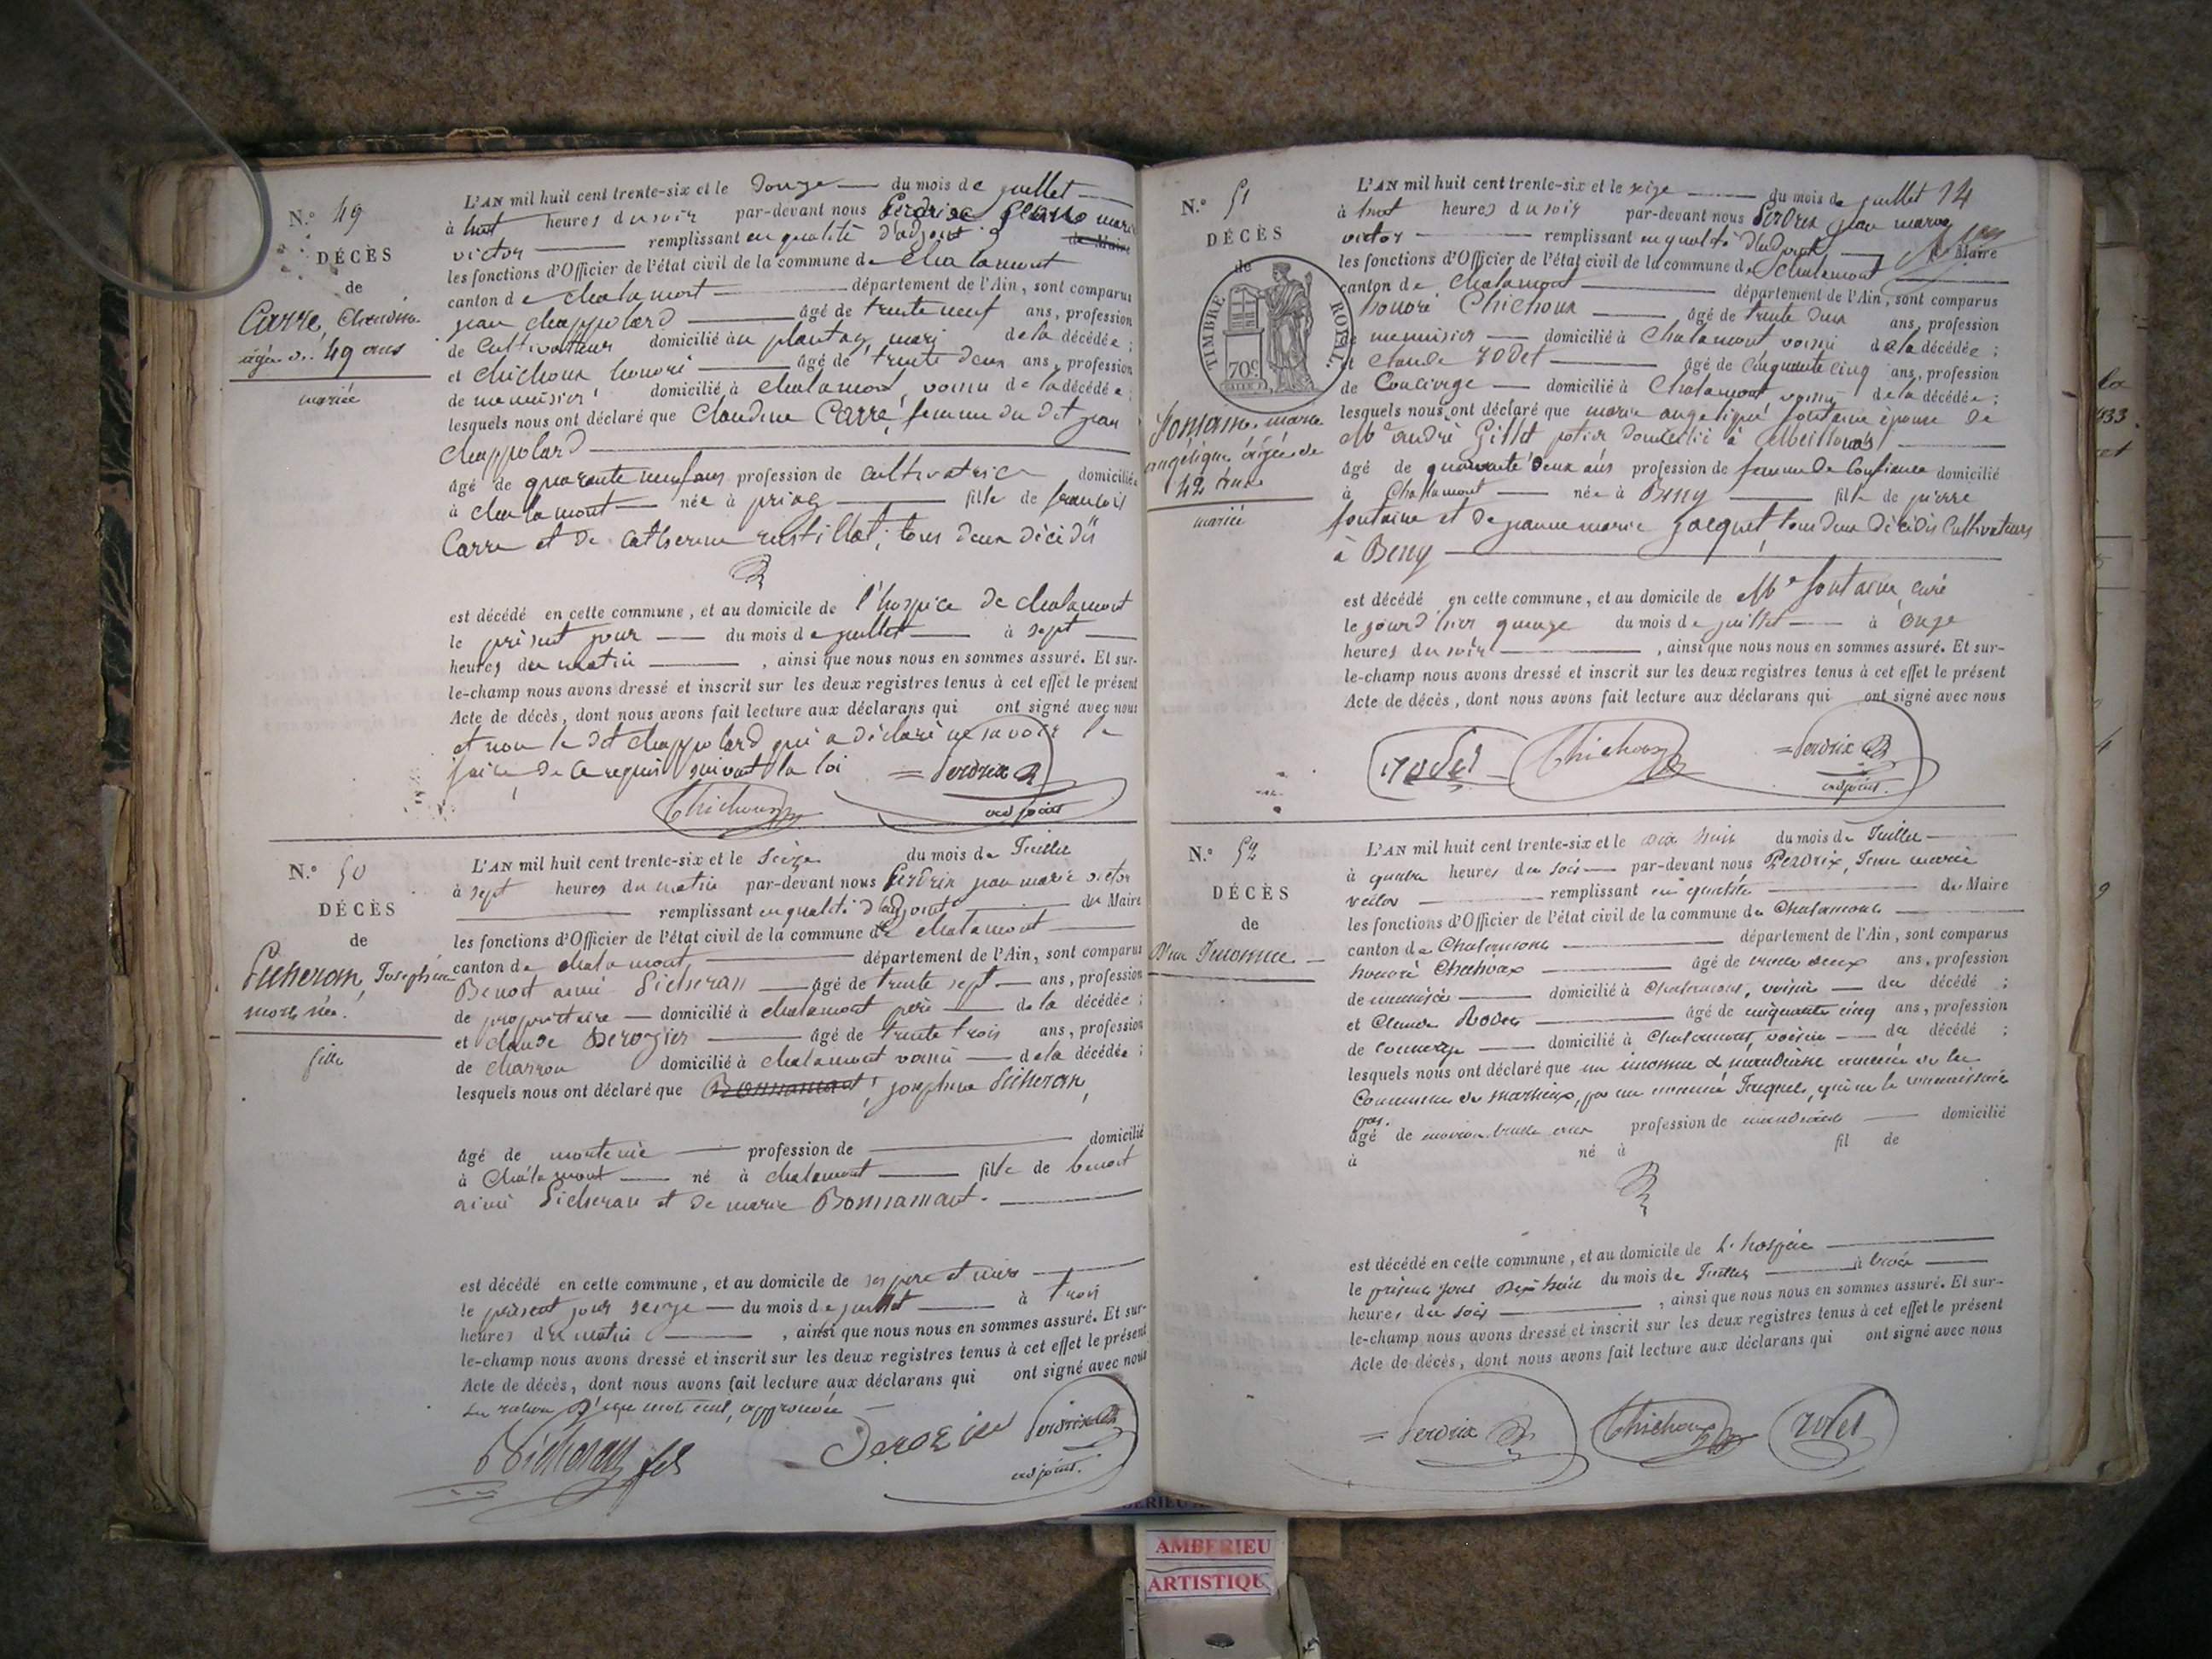 N.º 49
DÉCÈS
de
Carré, Claudine
agée de 49 ans
mariée
L'AN mil huit cent trente-six et le Douze du mois de juillet
à huit heures du soir par-devant nous Perdrix jean marie
victor remplissant en qualité d'adjoint de Maire
les fonctions d'Officier de l'état civil de la commune de chalamont
canton de chalamont département de l'Ain, sont comparus
jean chappolard âgé de trente neuf ans, profession
de Cultivateur domicilié au plantay mari de la décédée;
et chichoux honoré âgé de trente deux ans, profession
de menuisier domicilié à chalamont, voisin de la décédée;
lesquels nous ont déclaré que Claudine Carré, femme du dit jean
chappolard
âgé de quarante neuf ans profession de cultivatrice domiciliée
à chalamont née à priay fille de francois
Carre et de catherine tous deux décédés
est décédé en cette commune, et au domicile de l'hospice de chalamont
le présent jour du mois de juillet à sept
heures du matin, ainsi que nous nous en sommes assuré. Et sur-
le-champ nous avons dressé et inscrit sur les deux registres tenus à cet effet le présent
Acte de décès, dont nous avons fait lecture aux déclarans qui ont signé avec nous
et non le dit chappolard qui a déclaré ne savoir le
faire de ce requis suivant la loi Perdrix
Chichoux adjoint
N.º 50
DÉCÈS
de
Picheran, Joséphine
mort née.
fille
L'AN mil huit cent trente-six et le Seize du mois de Juillet
à sept heures du matin par-devant nous Perdrix jean marie victor
remplissant en qualité d'adjoint du Maire
les fonctions d'Officier de l'état civil de la commune de chalamont
canton de chalamont département de l'Ain, sont comparus
Benoit aimé Picheran âgé de trente sept ans, profession
de propriétaire domicilié à chalamont père de la décédée;
et claude Derogier âgé de trente trois ans, profession
de charron domicilié à chalamont voisin de la décédée;
lesquels nous ont déclaré que Bonnamant, josephine Picheran,
âgé de mort née profession de domicilié
à Chalamont né à chalamont fille de benoit
aimé Picheran et de marie Bonnamant.
est décédé en cette commune, et au domicile de ses pere et mere
le présent jour seize du mois de juillet à trois
heures du matin, ainsi que nous nous en sommes assuré. Et sur-
le-champ nous avons dressé et inscrit sur les deux registres tenus à cet effet le présent
Acte de décès, dont nous avons fait lecture aux déclarans qui ont signé avec nous
La rature d'un mot nul, approuvée
Picheran fils Derogier Perdrix
adjoint.
14
N.º 51
DÉCÈS
de
TIMBRE ROYAL.
70c
fontaine, marie
angélique âgée de
42 ans
mariée
L'AN mil huit cent trente-six et le seize du mois de juillet
à huit heures du soir par-devant nous Perdrix jean marie
victor remplissant en qualité d'adjoint de Maire
les fonctions d'Officier de l'état civil de la commune de Chalamont
canton de Chalamont département de l'Ain, sont comparus
honoré Chichoux âgé de trente deux ans, profession
de menuisier domicilié à Chalamont voisin de la décédée;
et claude rodet âgé de cinquante cinq ans, profession
de Concierge domicilié à Chalamont voisin de la décédée;
lesquels nous ont déclaré que marie angelique fontaine épouse de
Mr andré Gillet potier domicilié à Meillonas
âgé de quarante deux ans profession de femme de Confiance domicilié
à Chalamont née à Beny fille de pierre
fontaine et de jeanne marie jacquet, tous deux décédés Cultivateurs
à Beny
est décédé en cette commune, et au domicile de Mr fontaine, curé
le jour d'hier quinze du mois de juillet à onze
heures du soir, ainsi que nous nous en sommes assuré. Et sur-
le-champ nous avons dressé et inscrit sur les deux registres tenus à cet effet le présent
Acte de décès, dont nous avons fait lecture aux déclarans qui ont signé avec nous
rodet Chichoux Perdrix
adjoint.
N.º 52
DÉCÈS
de
D'un Inconnu
L'AN mil huit cent trente-six et le dix huit du mois de Juillet
à quatre heures du soir par-devant nous Perdrix, Jean marie
victor remplissant en qualité de Maire
les fonctions d'Officier de l'état civil de la commune de Chalamont
canton de Chalamont département de l'Ain, sont comparus
honoré Chichoux âgé de trente deux ans, profession
de menuisier domicilié à Chalamont, voisin du décédé;
et Claude Rodet âgé de cinquante cinq ans, profession
de Concierge domicilié à Chalamont, voisin du décédé;
lesquels nous ont déclaré que un inconnu & mandiant amené de la
Commune de marlieux, par un nommé Jacquet, qui ne le connaissait
pas.
âgé de environ trente ans profession de mandiant domicilié
à né à fil de
est décédé en cette commune, et au domicile de L'hospice
le présent jour Dix huit du mois de Juillet à trois
heures du soir, ainsi que nous nous en sommes assuré. Et sur-
le-champ nous avons dressé et inscrit sur les deux registres tenus à cet effet le présent
Acte de décès, dont nous avons fait lecture aux déclarans qui ont signé avec nous
Perdrix Chichoux rodet
AMBERIEU
ARTISTIQUE